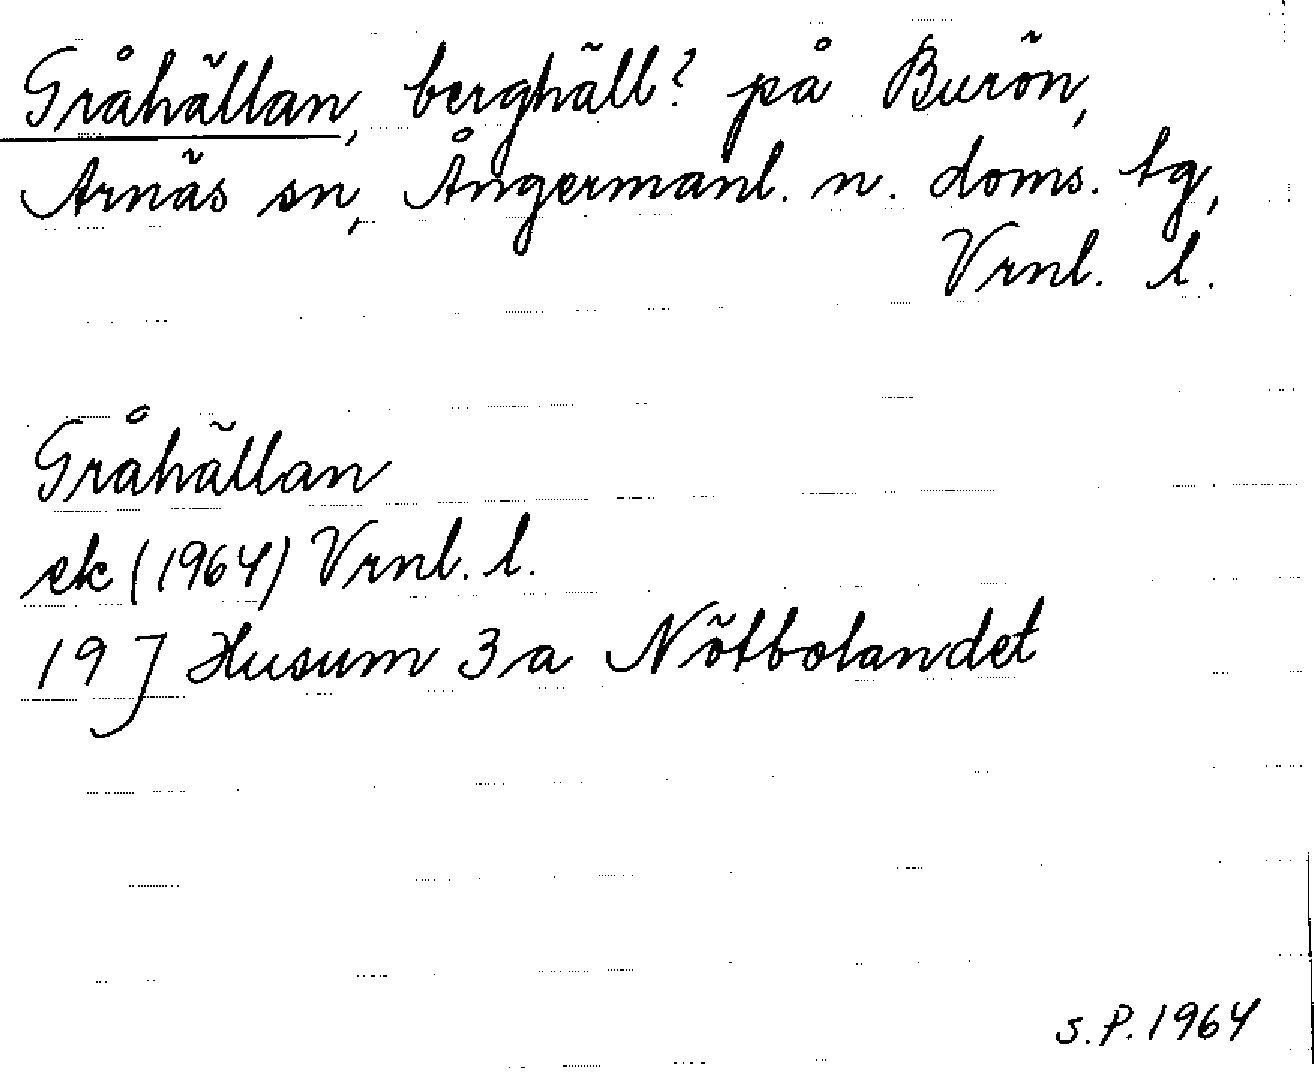 Gråhällan, berghäll? på Burön,
Arnäs sn, Ångermanl. n. doms. tg,
Vrnl. l.
Gråhällan
ek (1964) Vrnl. l.
19 J Husum 3a Nötbolandet
S.P. 1964